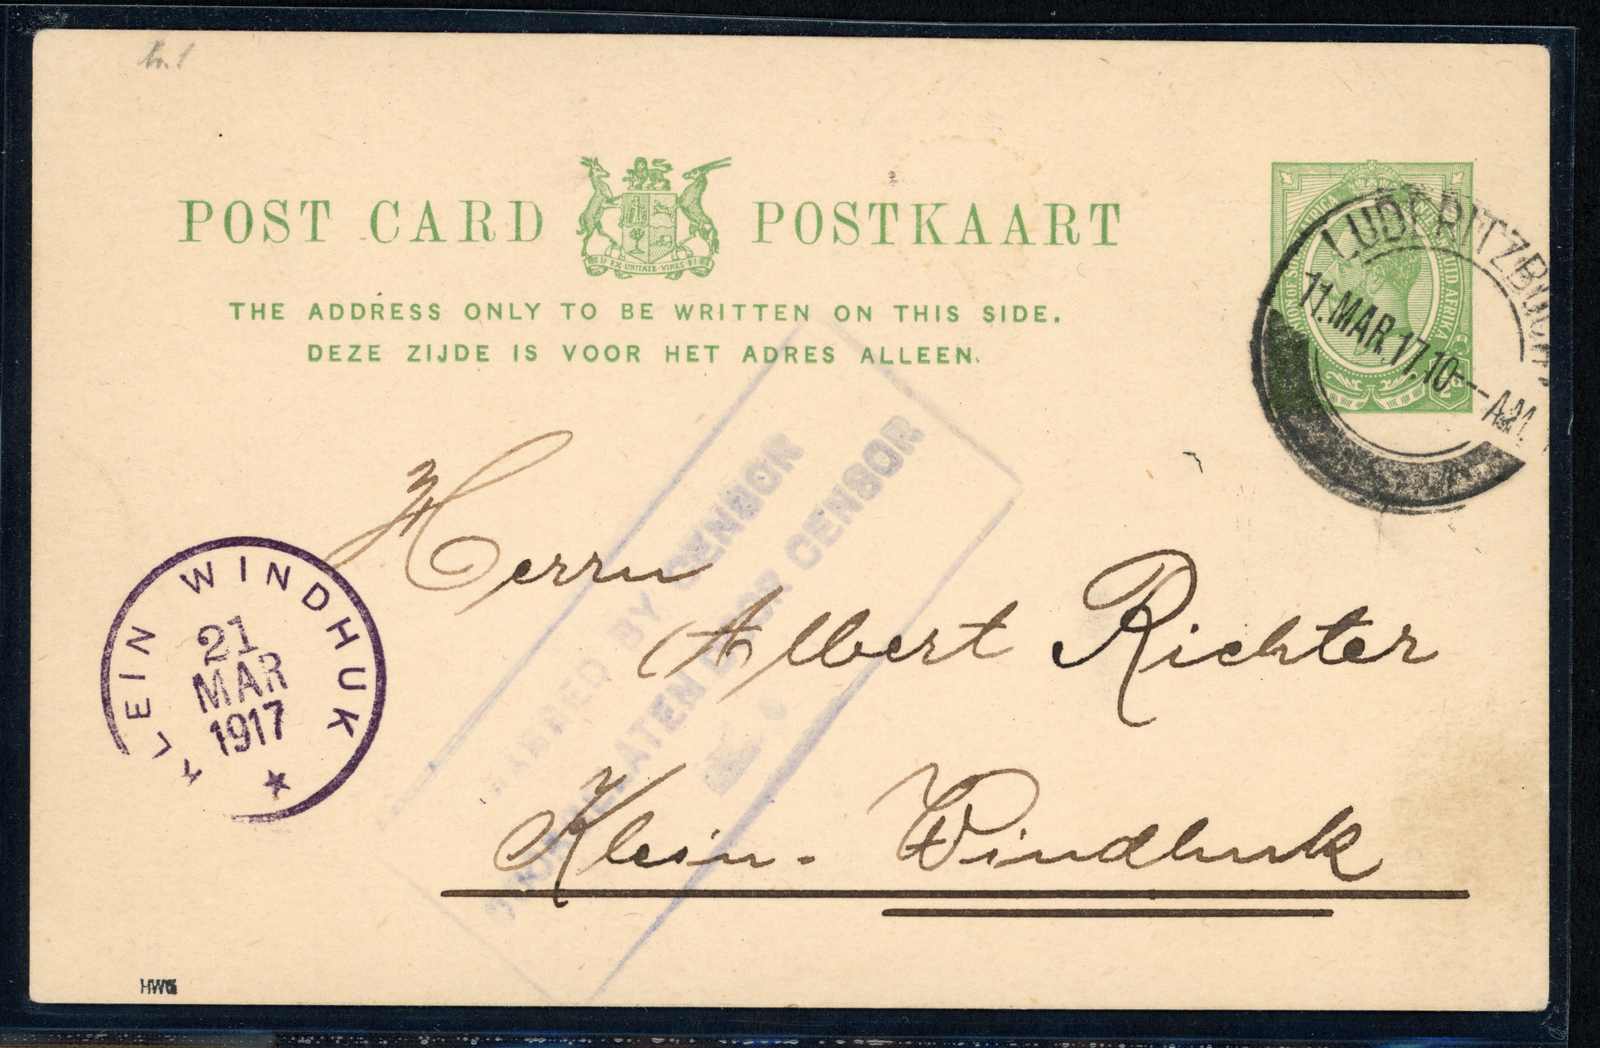 POST CARD POSTKAART
EX UNITATE VIRES
THE ADDRESS ONLY TO BE WRITTEN ON THIS SIDE.
DEZE ZIJDE IS VOOR HET ADRES ALLEEN.
LUDERITZBUCHT
11.MAR.17.10---AM.
BY CENSOR
DOOR CENSOR
Herrn
Albert Richter
Klein-Windhuk
KLEIN WINDHUK
21
MAR
1917